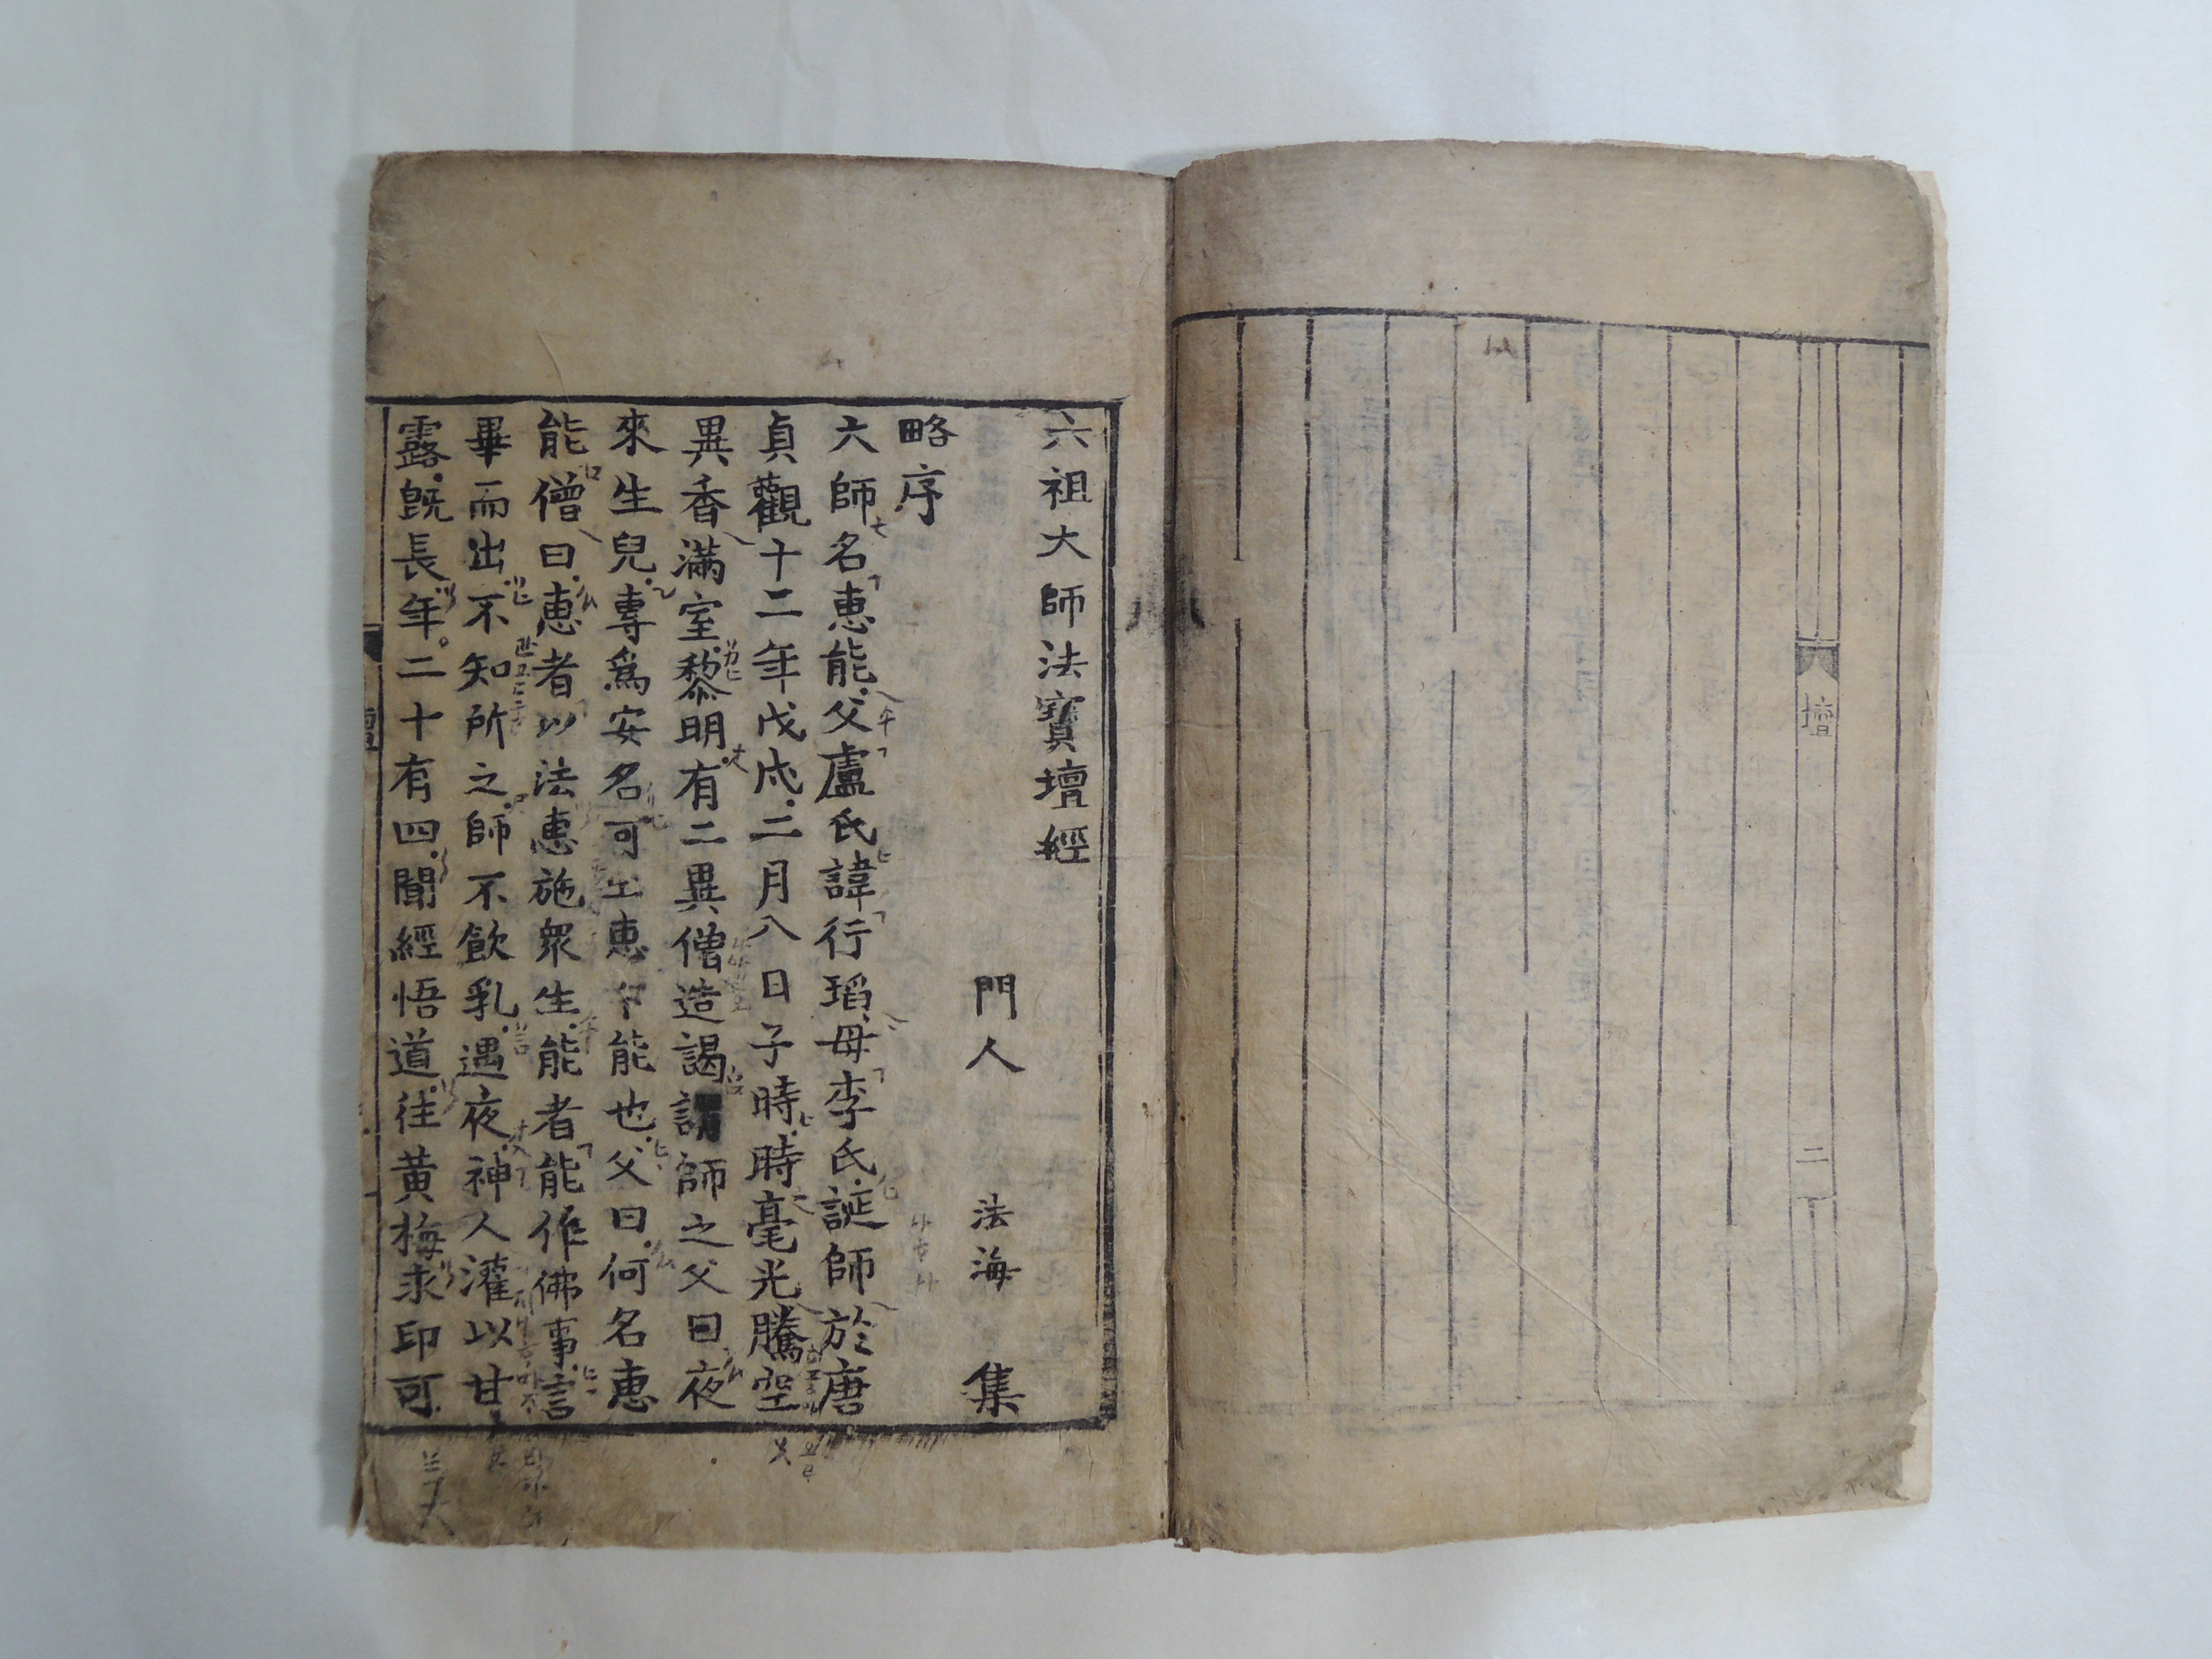 壇
二
六祖大師法寶壇經
門人 法海 集
略序
大師名惠能父盧氏諱行瑫母李氏誕師於唐
貞觀十二年戊戌二月八日子時時毫光騰空
異香滿室黎明有二異僧造謁謂師之父曰夜
來生兒專爲安名可上惠下能也父曰何名惠
能僧曰惠者以法惠施衆生能者能作佛事言
畢而出不知所之師不飲乳遇夜神人灌以甘
露旣長年二十有四聞經悟道往黃梅求印可
壇